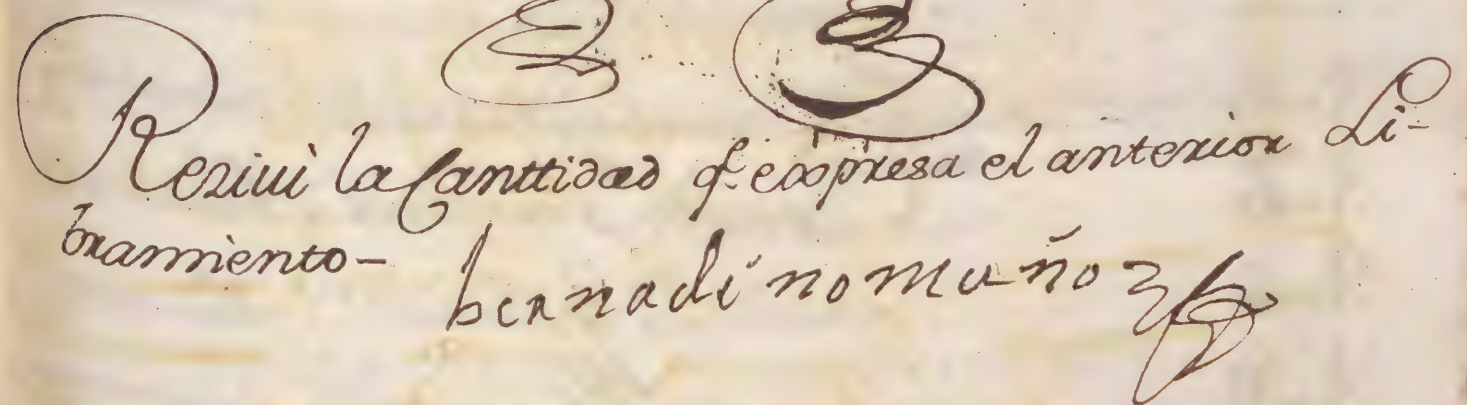 Reziui la Canttidad q.e expresa el anterior Li-
bramiento-
bernadino muñoz